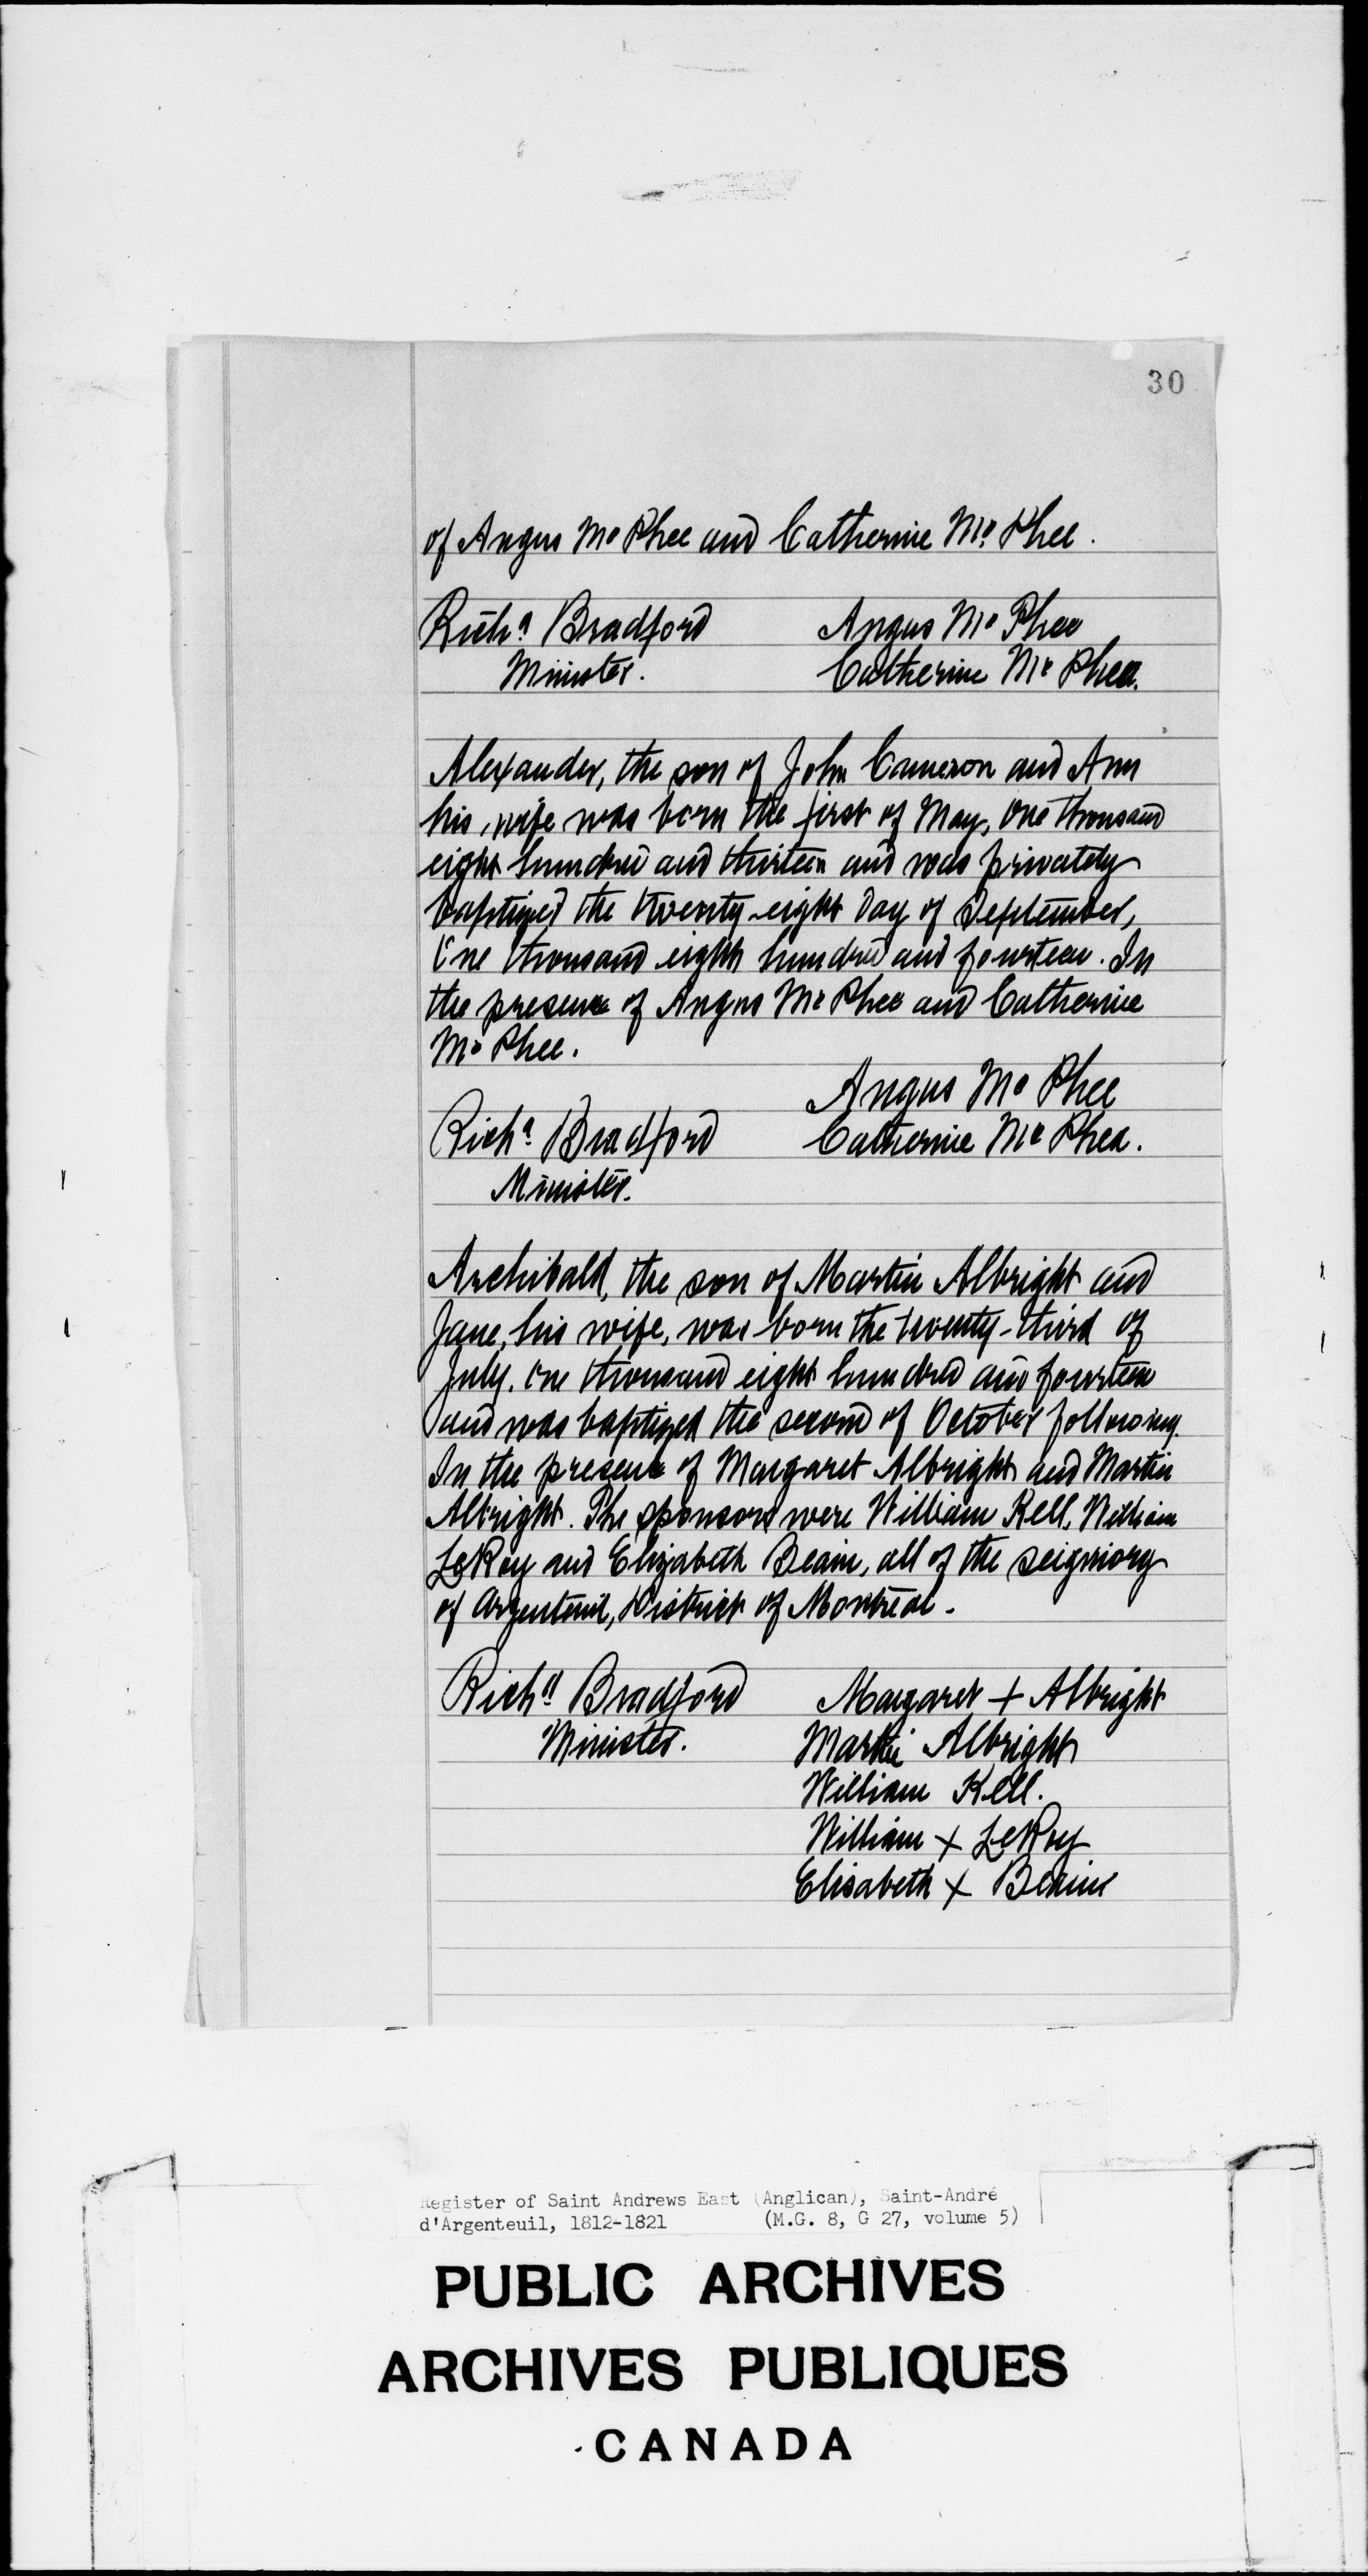 30
of Angus Mc Phee and Catherine Mc Phee.
Richd Bradford Angus Mc Phee
Minister. Catherine Mc Phee.
Alexander, the son of John Cameron and Ann
his, wife was born the first of May, One thousand
eight hundred and thirteen and was privately
baptized the twenty-eight day of September,
One thousand eight hundred and fourteen. In
the presence of Angus Mc Phee and Catherine
Mc Phee.
Angus Mc Phee
Richd Bradford Catherine Mc Phee.
Minister.
Archibald, the son of Martin Albright and
Jane, his wife, was born the twenty-third of
July. One thousand eight hundred and fourteen
and was baptized the second of October following.
In the presence of Margaret Albright and Martin
Albright. The sponsors were William Kell, William
LeRoy and Elizabeth Beain, all of the seigniory
of Argenteuil, District of Montreal.
Richd Bradford Margaret + Albright
Minister. Martin Albright
William Kell.
William + LeRoy
Elisabeth + Beain
Register of Saint Andrews East (Anglican), Saint-André
d'Argenteuil, 1812-1821 (M.G. 8, G 27, volume 5)
PUBLIC ARCHIVES
ARCHIVES PUBLIQUES
CANADA